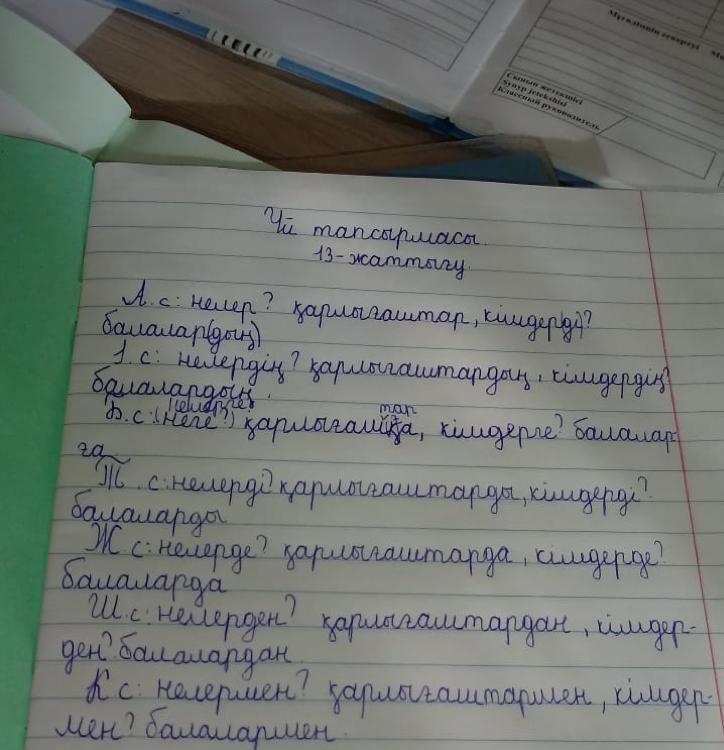 Мұғалімнің ескертуі
Сынып жетекшісі
Synyp jetekshisi
Классный руководитель
Үй тапсырмасы.
13-жаттығу.
А.с: нелер? қарлығаштар, кімдер(ді)?
балалар(дың)
І.с: нелердің? қарлығаштардың, кімдердің?
балалардың.
нелерге? тар
Б.с: (неге?) қарлығашқа, кімдерге? балалар-
ға
Т.с: нелерді? қарлығаштарды, кімдерді?
балаларды
Ж.с: нелерде? қарлығаштарда, кімдерде?
балаларда
Ш.с: нелерден? қарлығаштардан, кімдер-
ден? балалардан.
К с: нелермен? қарлығаштармен, кімдер-
мен? балалармен.